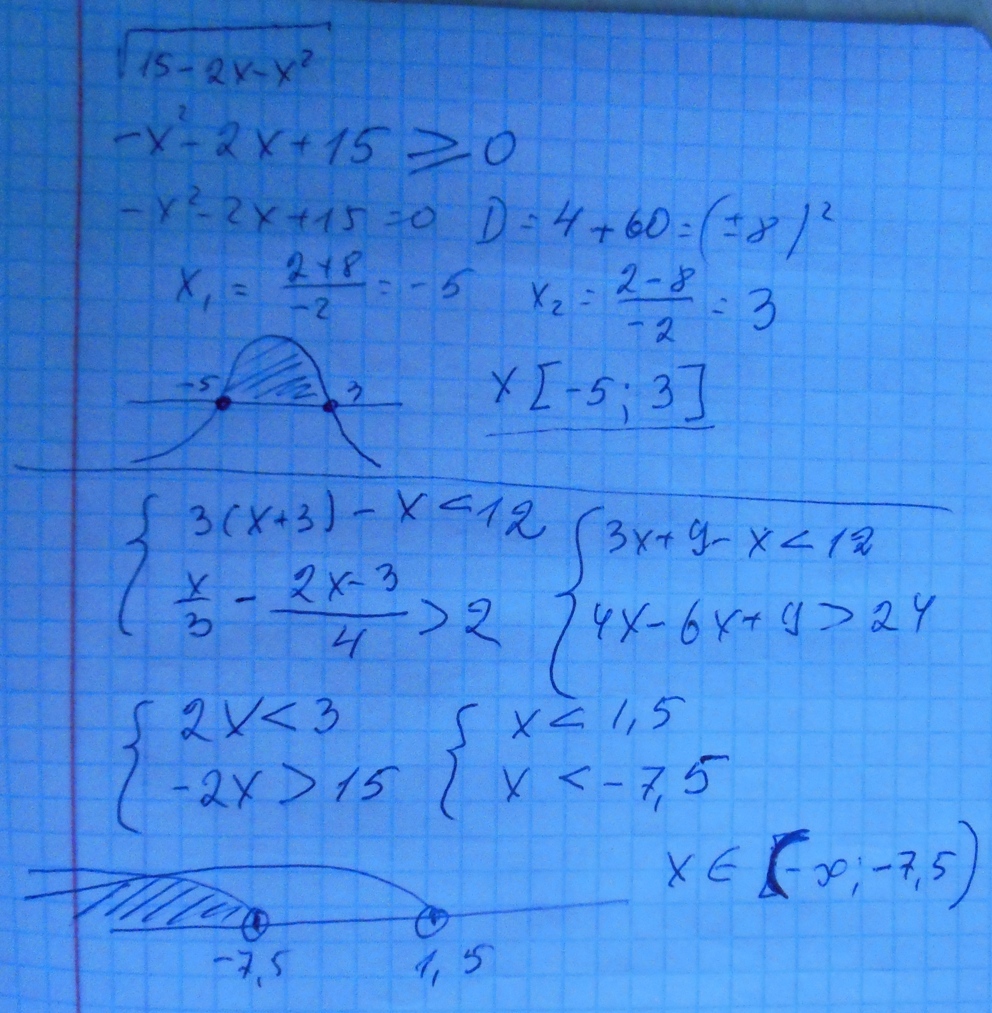 √(15-2x-x²)
-x²-2x+15 ⩾ 0
-x²-2x+15=0 D=4+60=(±8)²
x₁ = (2+8)/(-2) = -5 x₂ = (2-8)/(-2) = 3
-5 3
x [-5; 3]
{ 3(x+3)-x<12 { 3x+9-x<12
x/3 - (2x-3)/4 > 2 4x-6x+9>24
{ 2x<3 { x< 1,5
-2x>15 x <-7,5
x ∈ (-∞; -7,5)
-7,5 1,5